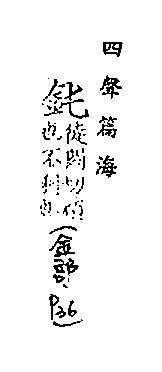 四聲篇海
鈍
徒悶切頑
也不利也
(金部, P36)